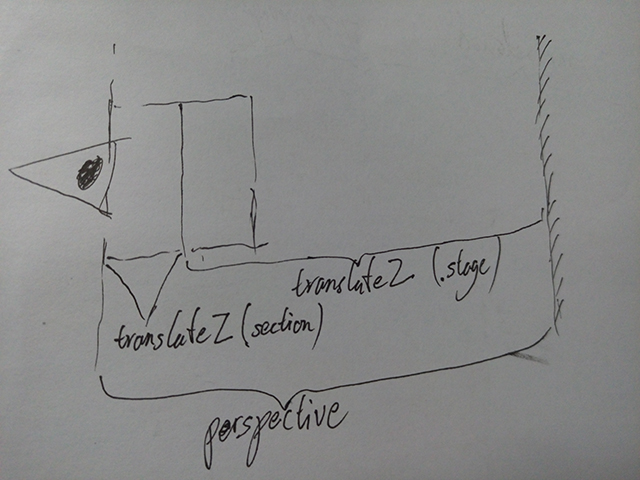 translateZ (.stage)
translateZ (section)
perspective